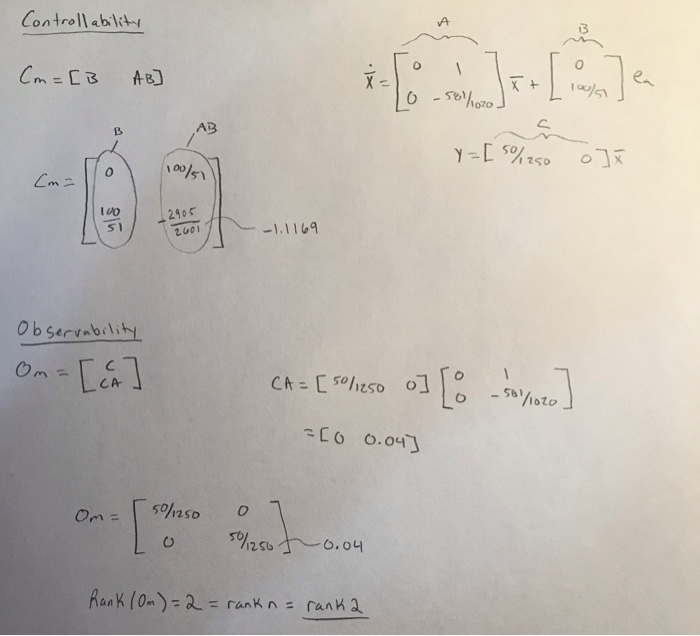 Controllability
A
B
Cm = [B AB]
ẋ = [0 1
0 -581/1020] x̄ + [0
100/51] ea
C
Y = [50/1250 0] x̄
B
AB
Cm = [0 100/51
100/51 -2905/2601]
-1.1169
Observability
Om = [C
CA]
CA = [50/1250 0] [0 1
0 -581/1020]
= [0 0.04]
Om = [50/1250 0
0 50/1250]
0.04
Rank(Om) = 2 = rank n = rank 2